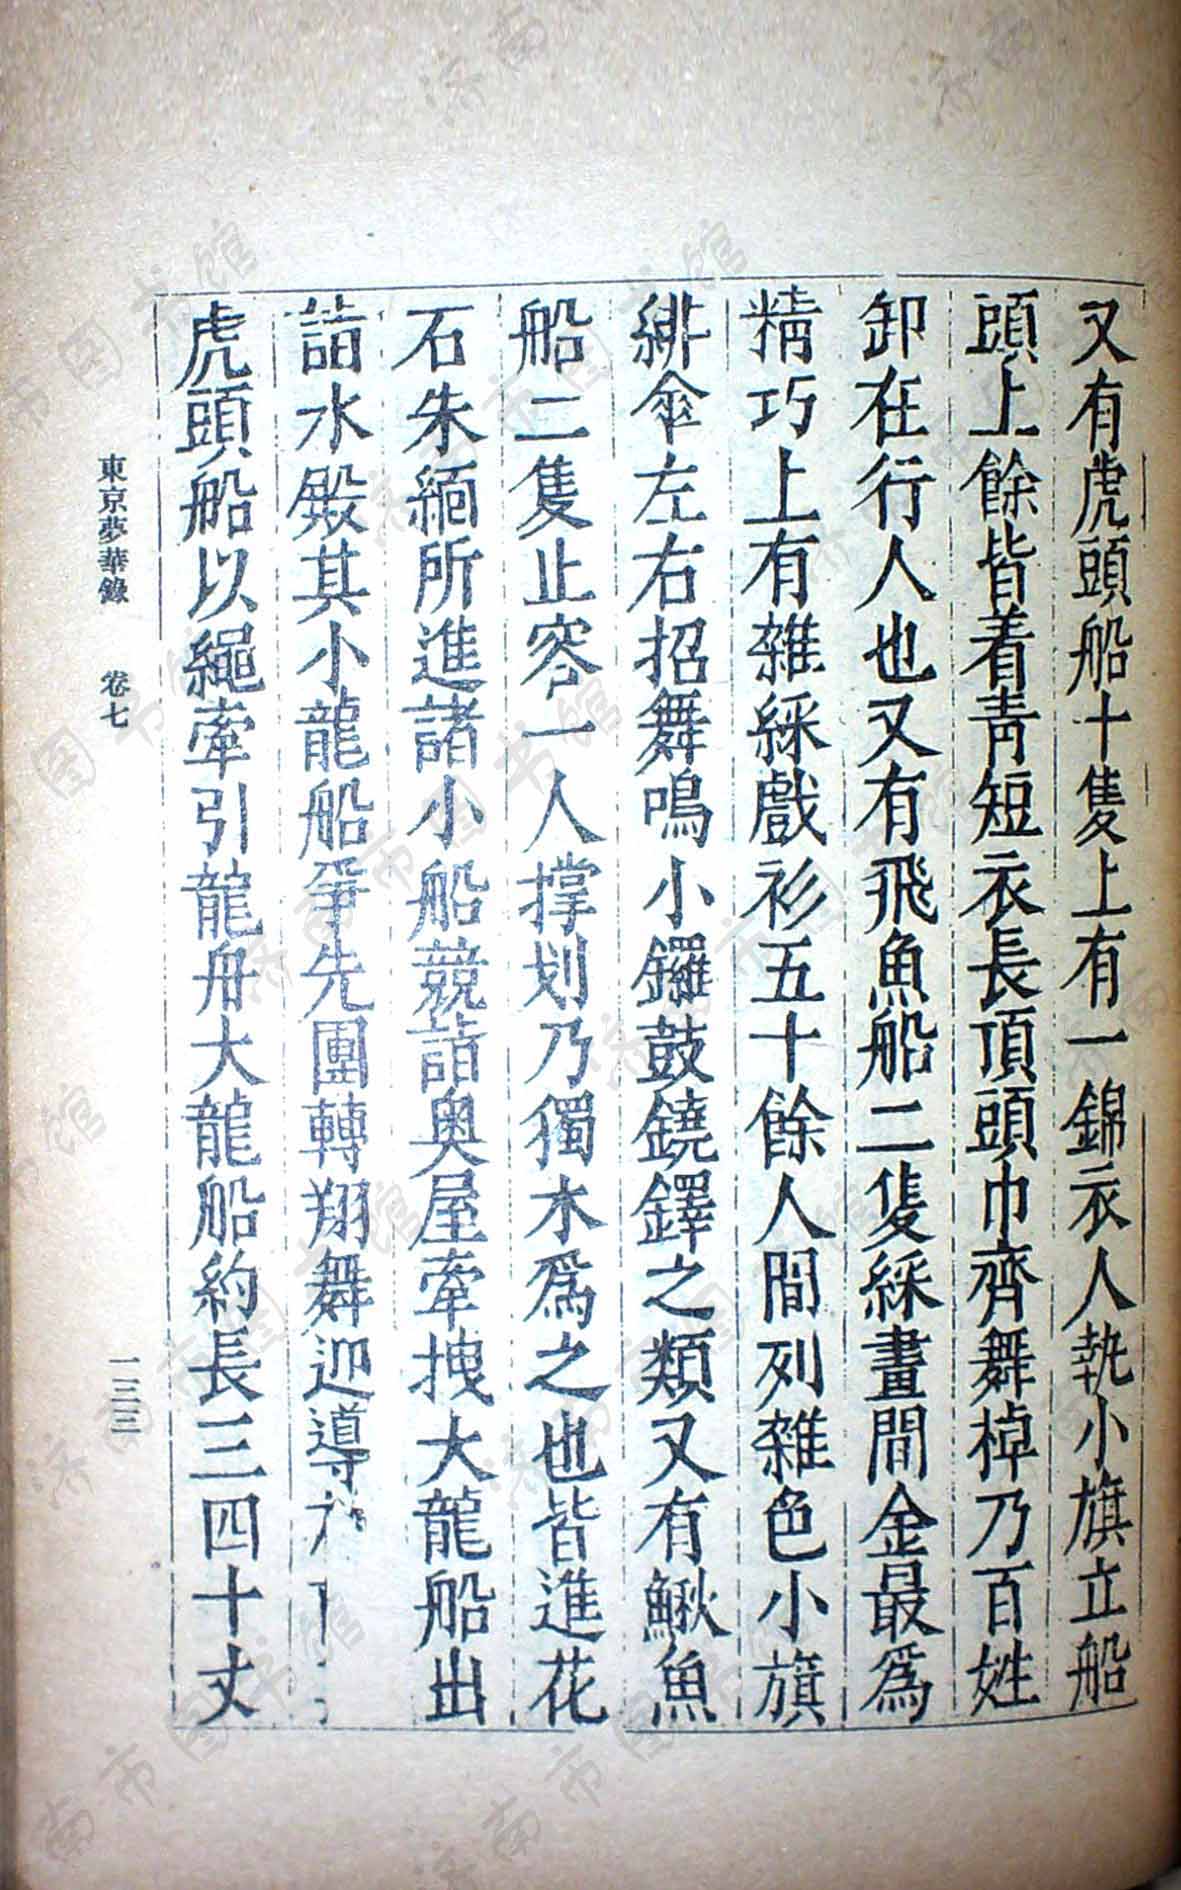 又有虎頭船十隻上有一錦衣人執小旗立船
頭上餘皆着青短衣長頂頭巾齊舞棹乃百姓
卸在行人也又有飛魚船二隻綵畫間金最爲
精巧上有雜綵戲衫五十餘人間列雜色小旗
緋傘左右招舞鳴小鑼鼓鐃鐸之類又有鰍魚
船二隻止容一人撑划乃獨木爲之也皆進花
石朱緬所進諸小船競詣奥屋牽拽大龍船出
詣水殿其小龍船爭先團轉翔舞迎導
虎頭船以繩牽引龍舟大龍船約長三四十丈
東京夢華錄 卷七
一三三
济南市图书馆